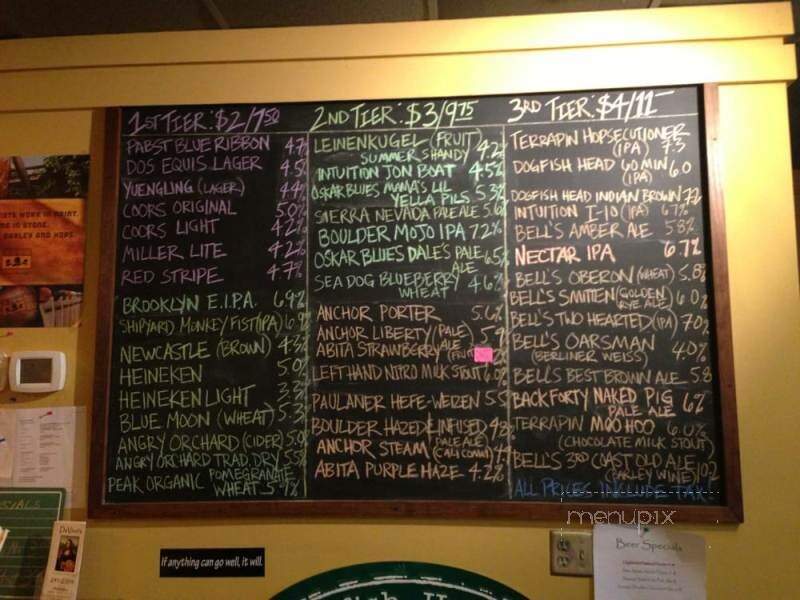 1ST TIER: $2/7.50
PABST BLUE RIBBON 4.7
DOS EQUIS LAGER 4.5
YUENGLING (LAGER) 4.4
COORS ORIGINAL 5.0%
COORS LIGHT 4.2%
MILLER LITE 4.2%
RED STRIPE 4.7%
BROOKLYN E.I.P.A. 6.9%
SHIPYARD MONKEY FIST (IPA)
NEWCASTLE (BROWN) 4.3%
HEINEKEN 5.0
HEINEKEN LIGHT
BLUE MOON (WHEAT) 5.3
ANGRY ORCHARD (CIDER) 5.0
ANGRY ORCHARD TRAD. DRY 5.5%
PEAK ORGANIC POMEGRANATE
WHEAT
2ND TIER: $3/9.75
LEINENKUGEL (FRUIT)
SUMMER SHANDY 4.2
INTUITION JON BOAT 4.5%
OSKAR BLUES MAMA'S LIL
YELLA PILS 5.3%
SIERRA NEVADA PALE ALE 5.6
BOULDER MOJO IPA 7.2%
OSKAR BLUES DALE'S PALE
ALE 6.5%
SEA DOG BLUEBERRY
WHEAT 4.6%
ANCHOR PORTER 5.6%
ANCHOR LIBERTY (PALE
ALE 5.9
ABITA STRAWBERRY (FRUIT
LEFT HAND NITRO MILK STOUT 6.0%
PAULANER HEFE-WEIZEN 5.5
BOULDER HAZED & INFUSED
(PALE ALE)
ANCHOR STEAM
ABITA PURPLE HAZE 4.2%
3RD TIER: $4/11
TERRAPIN HOPSECUTIONER
(IPA) 7.3
DOGFISH HEAD 60 MIN 6.0
(IPA)
DOGFISH HEAD INDIAN BROWN 7.2
INTUITION I-10 (IPA) 6.7%
BELL'S AMBER ALE 5.8%
NECTAR IPA 6.7%
BELL'S OBERON (WHEAT) 5.8%
BELL'S SMITTEN (GOLDEN
RYE ALE) 6.0%
BELL'S TWO HEARTED (IPA) 7.0%
BELL'S OARSMAN
(BERLINER WEISS) 4.0%
BELL'S BEST BROWN ALE 5.8
BACK FORTY NAKED PIG
PALE ALE 6%
TERRAPIN MOO HOO 6.0%
(CHOCOLATE MILK STOUT)
BELL'S 3RD COAST OLD ALE
(BARLEY WINE) 10.2
ALL PRICES INCLUDE TAX!
menupix
If anything can go well, it will.
Beer Specials